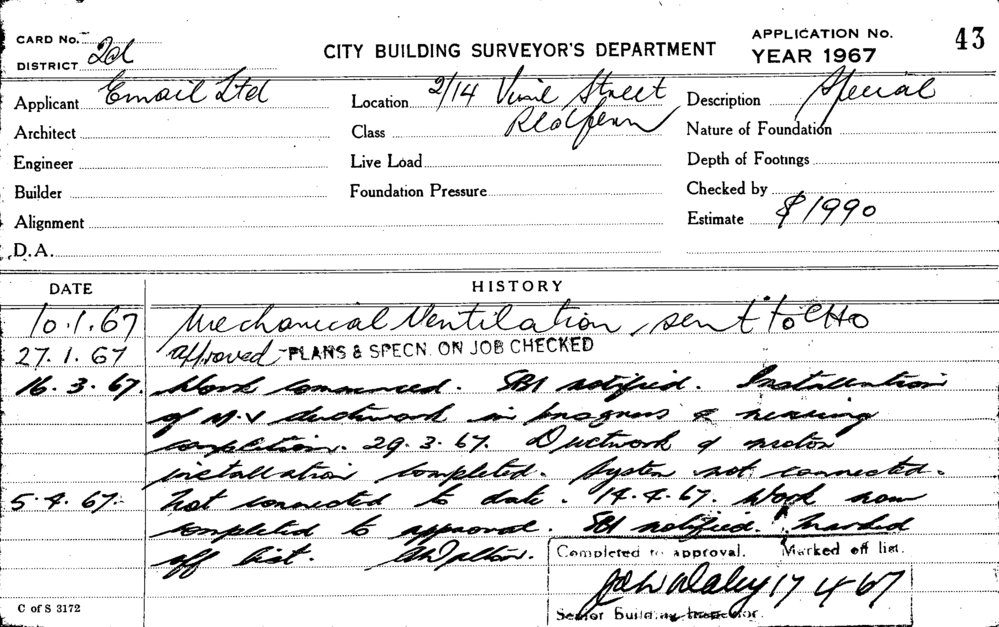 CARD No.
DISTRICT 2d
CITY BUILDING SURVEYOR'S DEPARTMENT
APPLICATION No.
YEAR 1967
43
Applicant Email Ltd
Location 2/14 Vine Street
Redfern
Description Special
Architect
Class
Nature of Foundation
Engineer
Live Load
Depth of Footings
Builder
Foundation Pressure
Checked by
Alignment
Estimate $1990
D.A.
DATE HISTORY
10.1.67 Mechanical Ventilation, sent to CHO
27.1.67 approved - PLANS & SPECN. ON JOB CHECKED
16.3.67. Work commenced. SBI notified. Installation
of M.V ductwork in progress & nearing
completion. 29.3.67. Ductwork & motor
installation completed. System not connected.
5.4.67. Not connected to date. 14.4.67. Work now
completed to approval. SBI notified. Marked
off list.
Completed to approval. Marked off list.
17 4 67
Senior Building Inspector.
C of S 3172